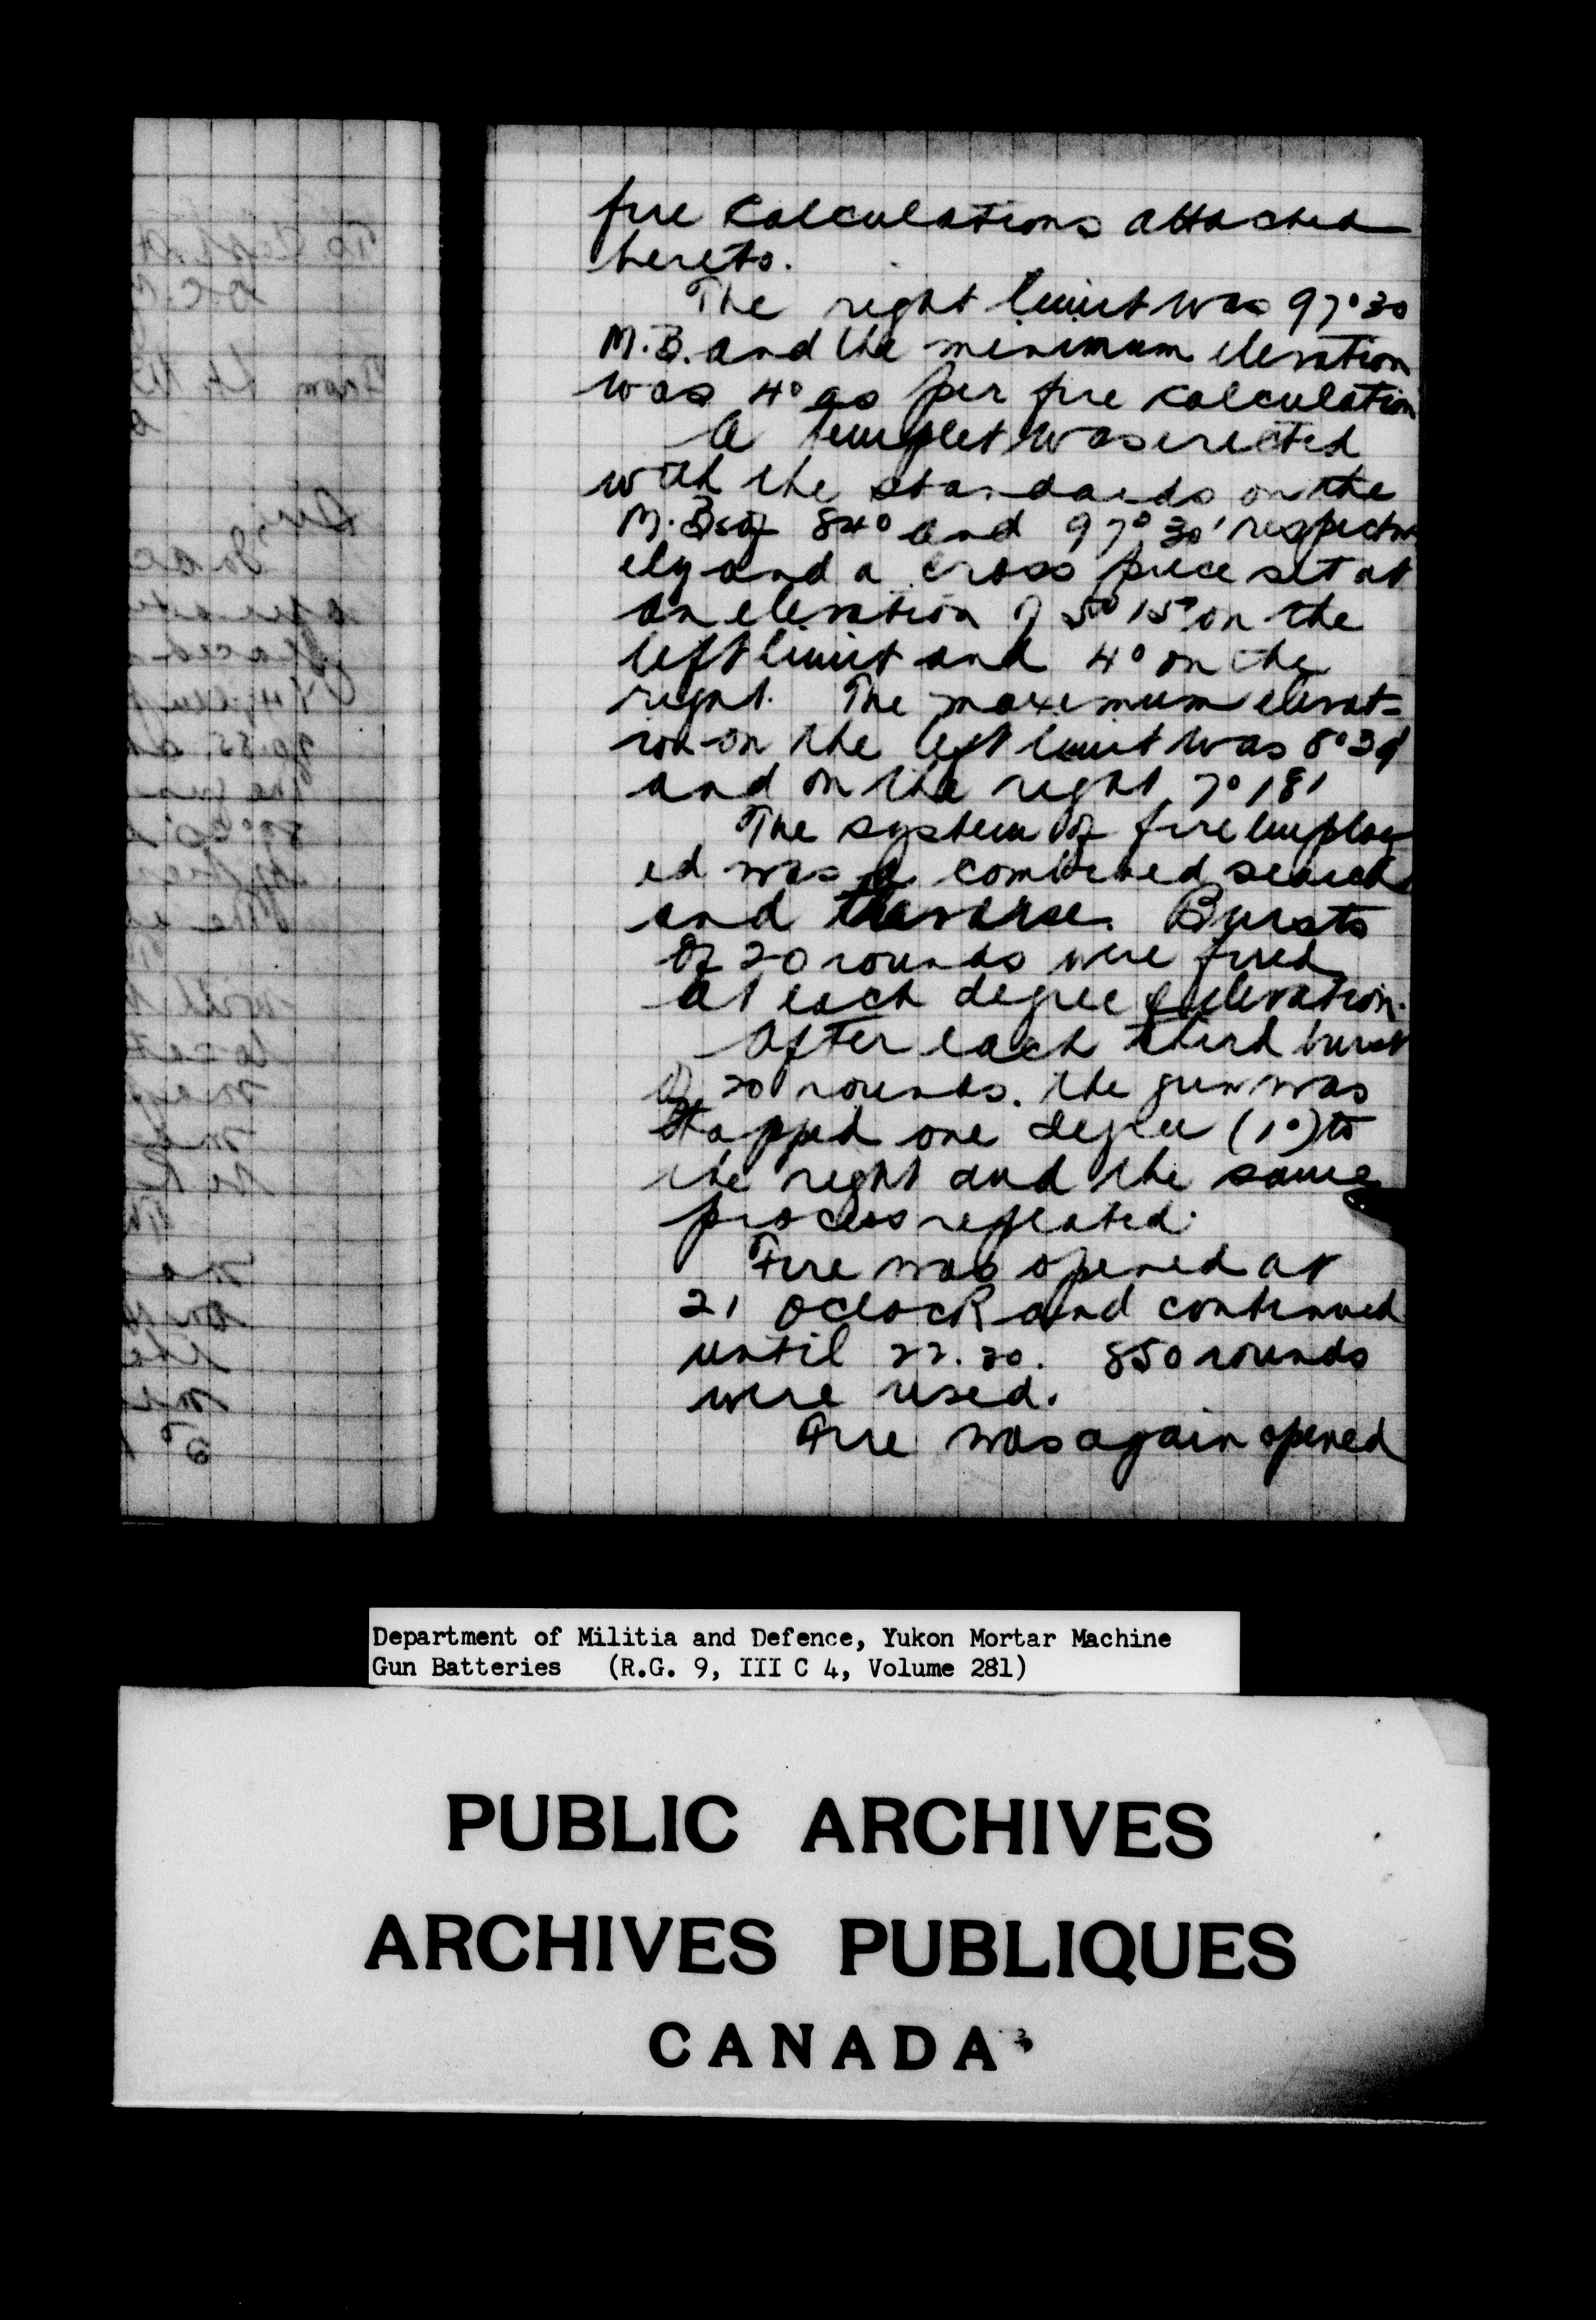 fire calculations attached
hereto.
The right limit was 97°30
M.B. and the minimum elevation
was 4° as per fire calculation
A templet was erected
with the standards on the
M.Bs of 84° and 97°30' respectiv
ely and a cross piece set at
an elevation of 5°15' on the
left limit and 4° on the
right. The maximum elevat-
ion on the left limit was 8°30'
and on the right 7°18'
The system of fire employ
ed was a combined search
and traverse. Bursts
of 20 rounds were fired
at each degree of elevation.
After each third burst
of 20 rounds. the gun was
tapped one degree (1°) to
the right and the same
process repeated.
Fire was opened at
21 oclock and continued
until 22.30. 850 rounds
were used.
Fire was again opened
Department of Militia and Defence, Yukon Mortar Machine
Gun Batteries (R.G. 9, III C 4, Volume 281)
PUBLIC ARCHIVES
ARCHIVES PUBLIQUES
CANADA